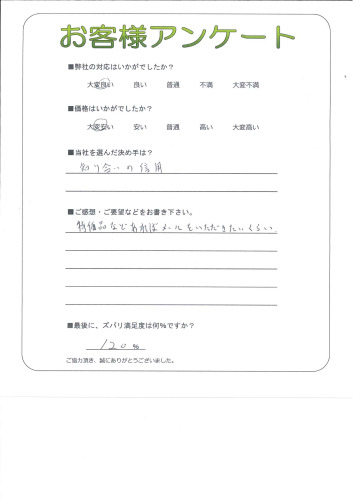 お客様アンケート
■弊社の対応はいかがでしたか？
大変良い　良い　普通　不満　大変不満
■価格はいかがでしたか？
大変安い　安い　普通　高い　大変高い
■当社を選んだ決め手は？
知り合いの信用
■ご感想・ご要望などをお書き下さい。
特価品などあればメールをいただきたいくらい
■最後に、ズバリ満足度は何%ですか？
120%
ご協力頂き、誠にありがとうございました。